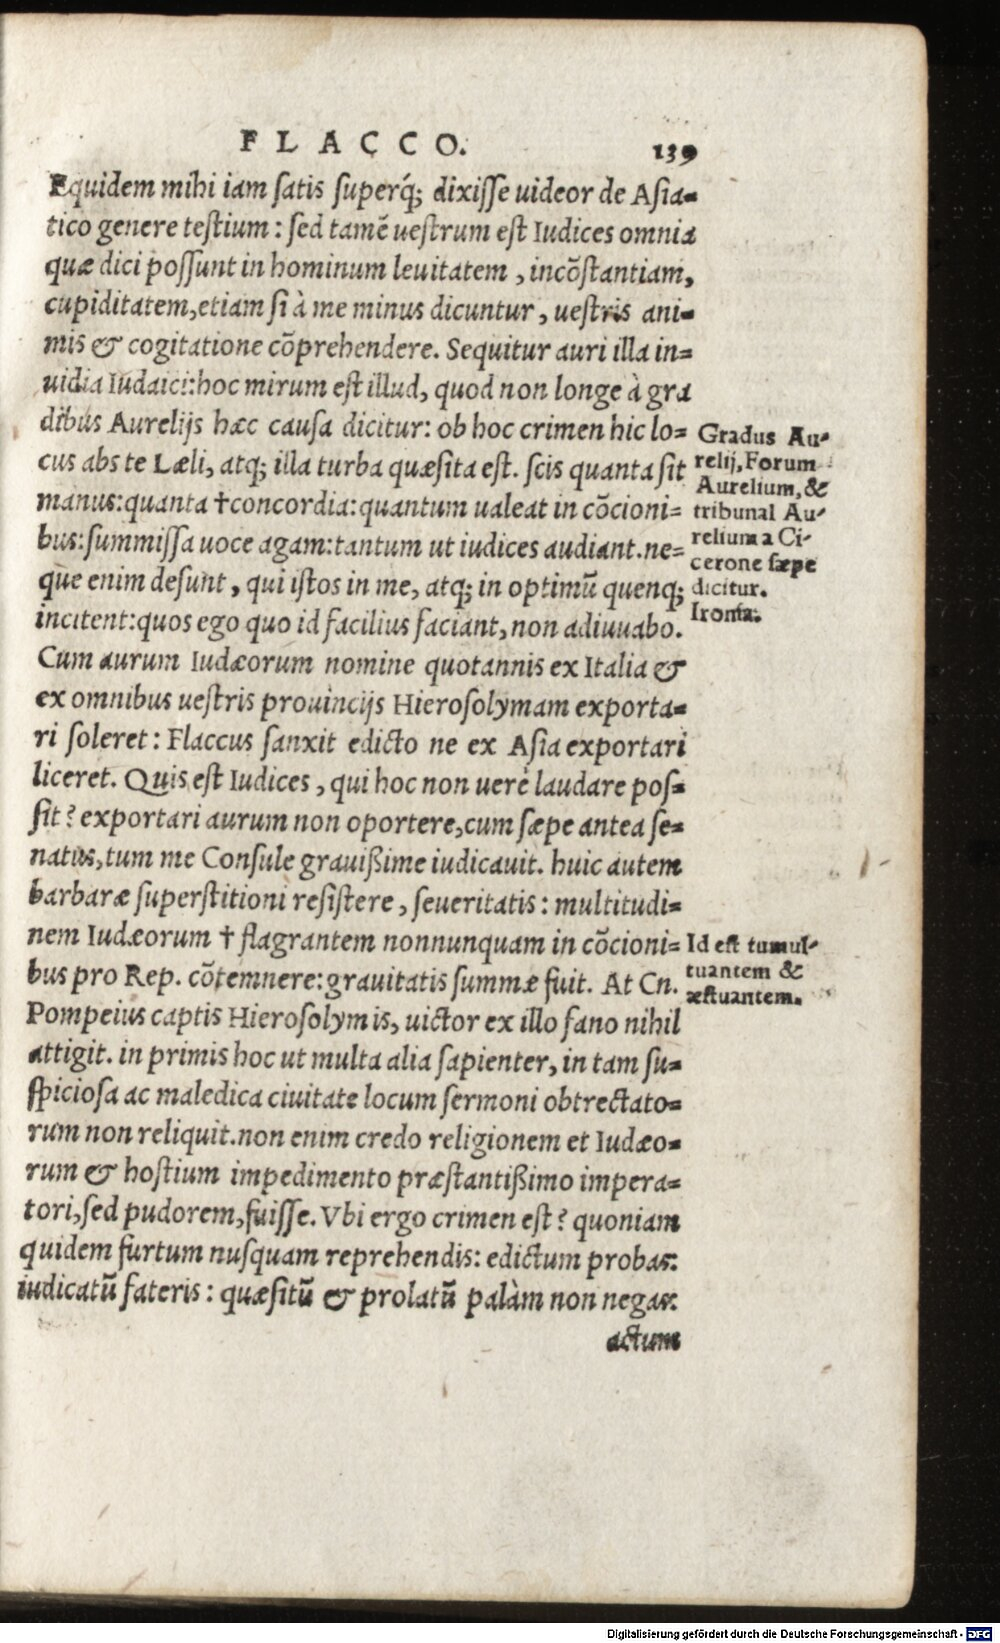 FLACCO. 139
Equidem mihi iam satis superq́; dixisse uideor de Asia-
tico genere testium: sed tamẽ uestrum est Iudices omnia
quæ dici possunt in hominum leuitatem, incõstantiam,
cupiditatem, etiam si à me minus dicuntur, uestris ani-
mis & cogitatione cõprehendere. Sequitur auri illa in-
uidia Iudaici: hoc mirum est illud, quod non longe à gra
dibus Aurelijs hæc causa dicitur: ob hoc crimen hic lo-
cus abs te Læli, atq; illa turba quæsita est. scis quanta sit
manus: quanta † concordia: quantum ualeat in cõcioni-
bus: summissa uoce agam: tantum ut iudices audiant. ne-
que enim desunt, qui istos in me, atq; in optimũ quenq;
incitent: quos ego quo id facilius faciant, non adiuuabo.
Cum aurum Iudæorum nomine quotannis ex Italia &
ex omnibus uestris prouincijs Hierosolymam exporta-
ri soleret: Flaccus sanxit edicto ne ex Asia exportari
liceret. Quis est Iudices, qui hoc non uerè laudare pos-
sit? exportari aurum non oportere, cum sæpe antea se-
natus, tum me Consule grauißime iudicauit. huic autem
barbaræ superstitioni resistere, seueritatis: multitudi-
nem Iudæorum † flagrantem nonnunquam in cõcioni-
bus pro Rep. cõtemnere: grauitatis summæ fuit. At Cn.
Pompeius captis Hierosolymis, uictor ex illo fano nihil
attigit. in primis hoc ut multa alia sapienter, in tam su-
spiciosa ac maledica ciuitate locum sermoni obtrectato-
rum non reliquit. non enim credo religionem et Iudæo-
rum & hostium impedimento præstantißimo impera-
tori, sed pudorem, fuisse. Vbi ergo crimen est? quoniam
quidem furtum nusquam reprehendis: edictum probas:
iudicatũ fateris: quæsitũ & prolatũ palàm non negas:
actum
Gradus Au-
relij, Forum
Aurelium, &
tribunal Au-
relium a Ci-
cerone sæpe
dicitur.
Ironia.
Id est tumul-
tuantem &
æstuantem.
Digitalisierung gefördert durch die Deutsche Forschungsgemeinschaft - DFG